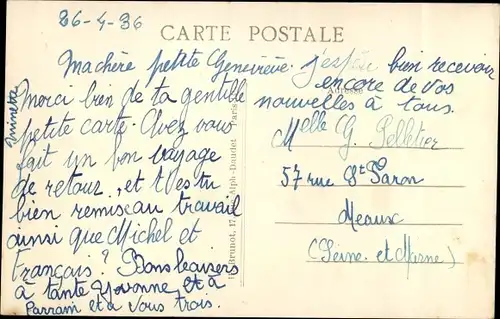 26-4-36
CARTE POSTALE
Ma chère petite Geneviève.
Merci bien de ta gentille
petite carte. Avez vous
fait un bon voyage
de retour, et t'es tu
bien remise au travail
ainsi que Michel et
Français? Bons baisers
à tante Yvonne, et à
Parrain et à vous trois.
Ninette
j'espère bien recevoir
encore de vos
nouvelles à tous.
Adresse
Melle G. Pelletier
57 rue St Faron
Meaux
(Seine. et Marne)
Brunot, 17, Alph-Daudet Paris